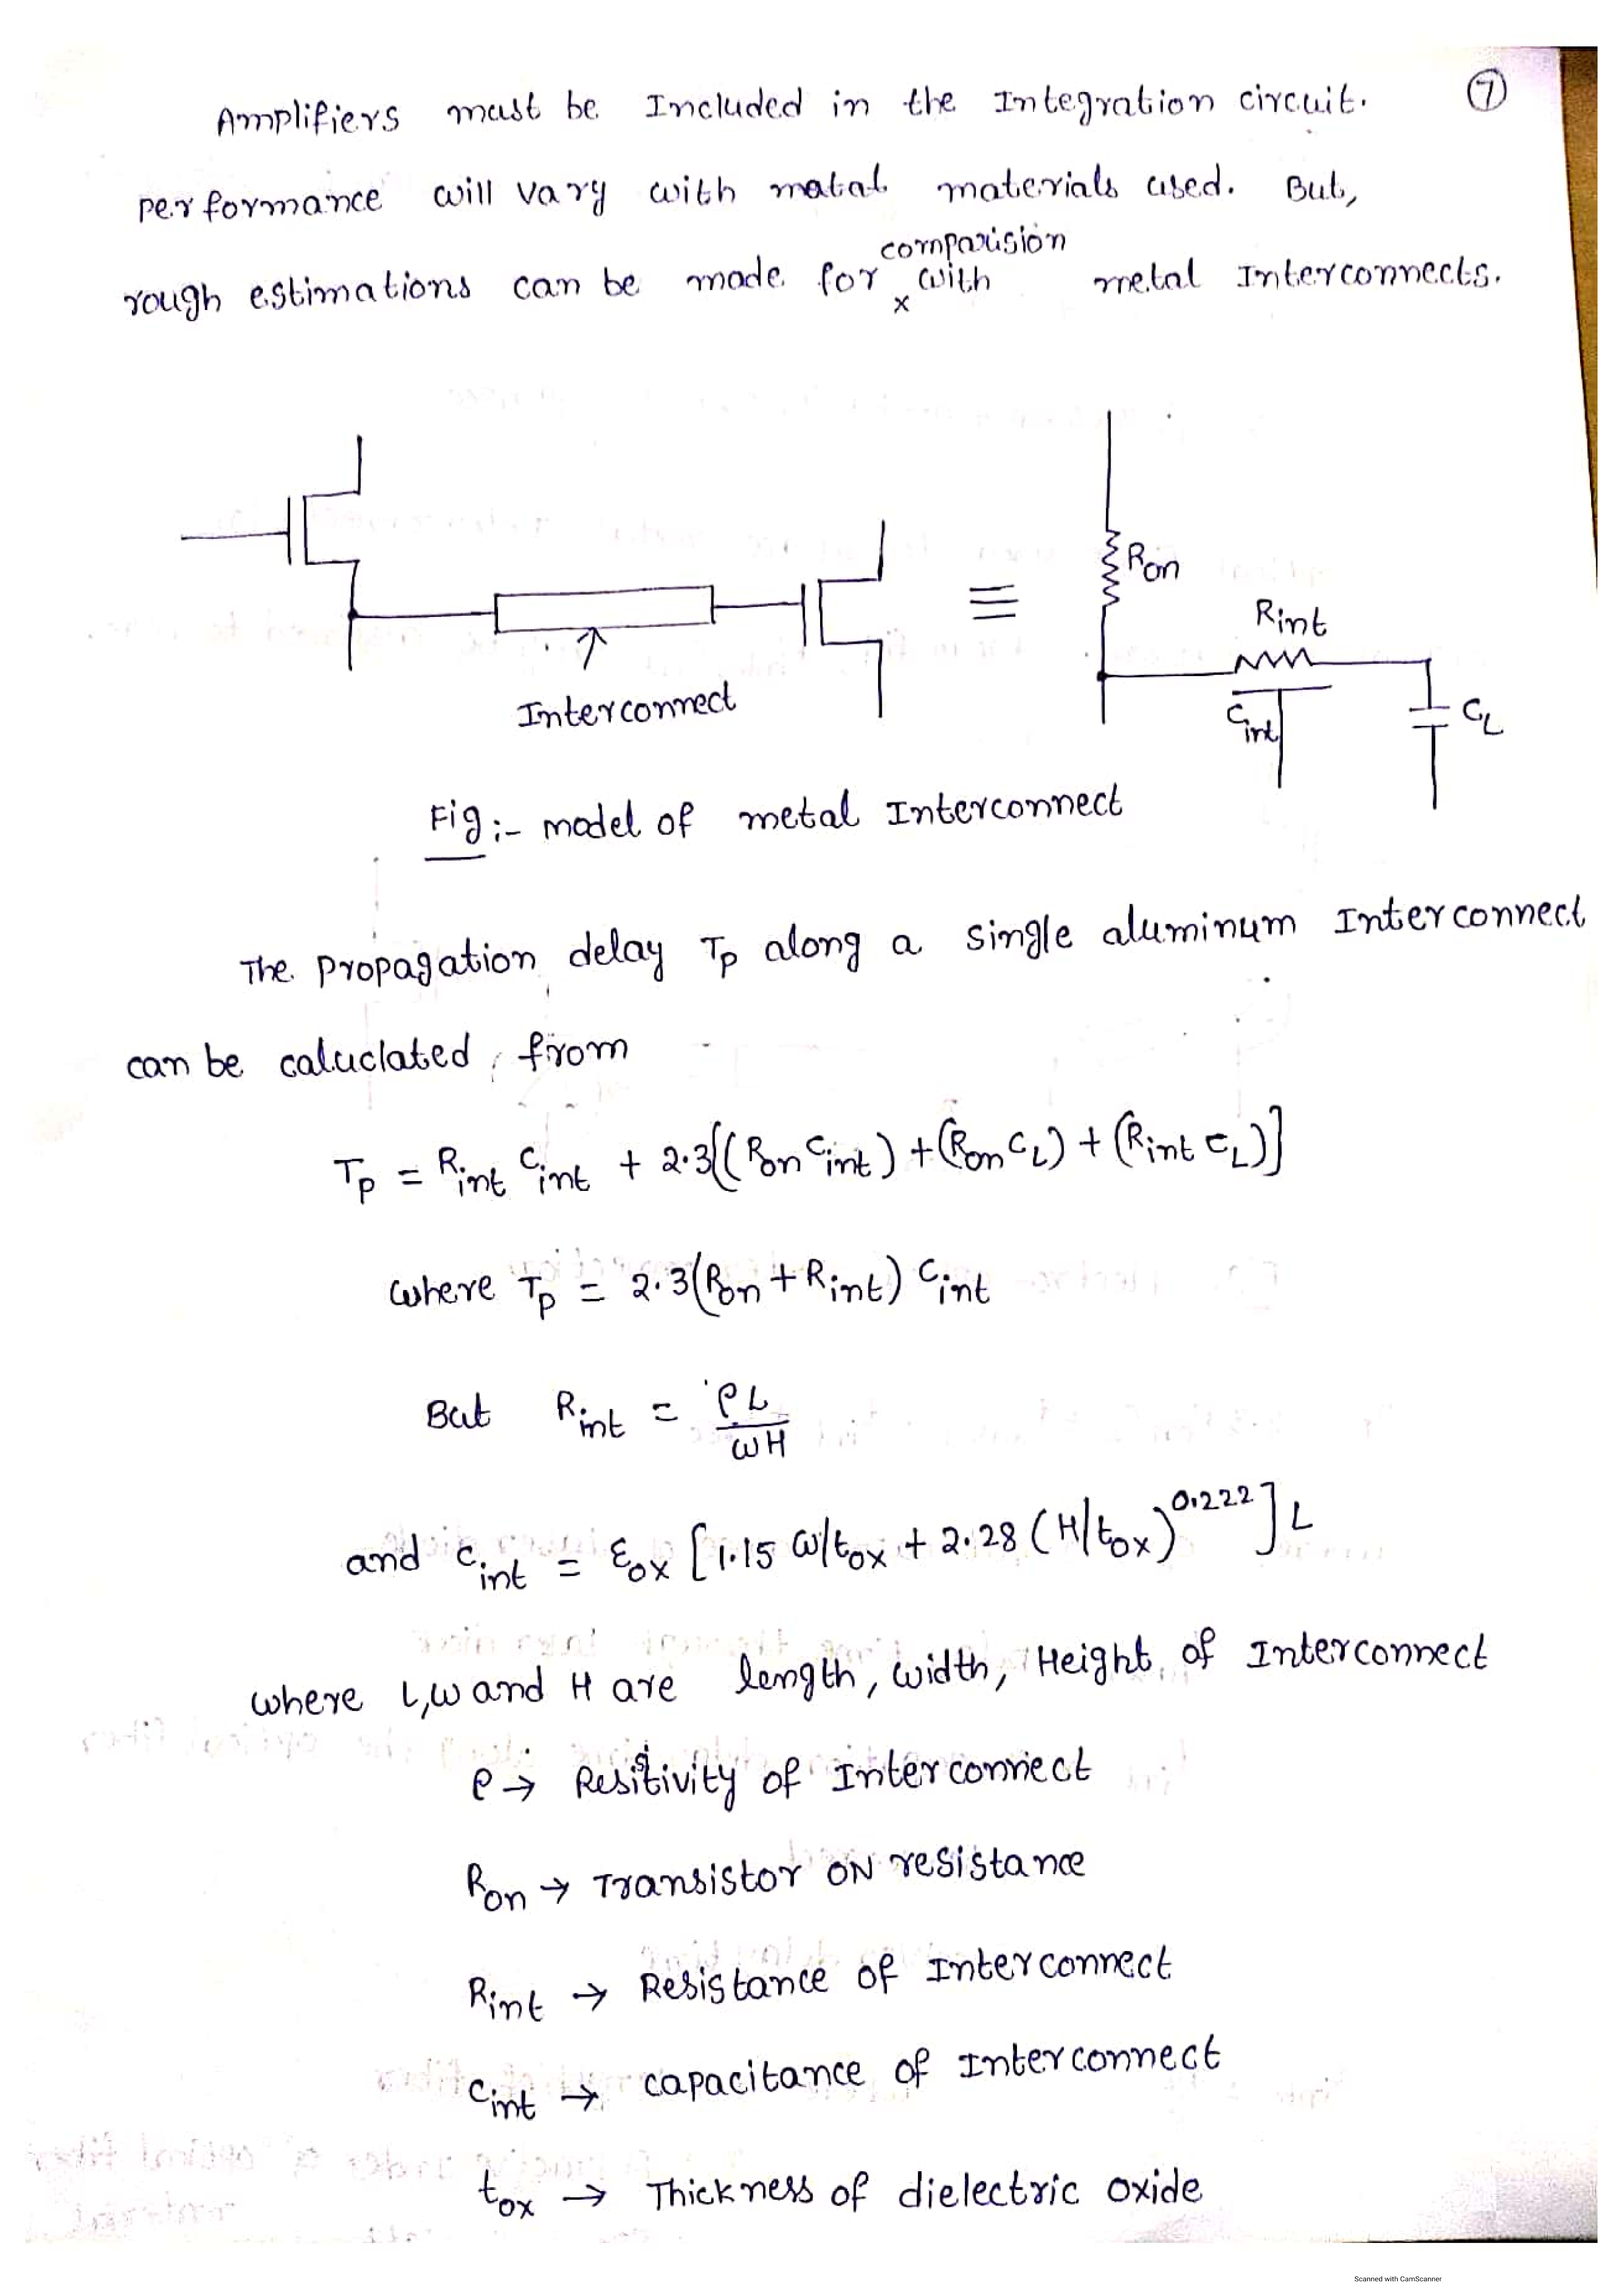 ⑦
Amplifiers must be Included in the Integration circuit.
performance will vary with matal materials used. But,
comparision
rough estimations can be made for x with metal Interconnects.
Ron
Rint
Cint
CL
≡
Interconnect
Fig :- model of metal Interconnect
The propagation delay Tp along a single aluminum Interconnect
can be caluclated from
Tp = Rint Cint + 2.3[(Ron Cint) + (Ron CL) + (Rint CL)]
where Tp = 2.3(Ron + Rint) Cint
But Rint = ρL / WH
and Cint = εox [1.15 W/tox + 2.28 (H/tox)^0.222] L
where L, W and H are length, width, Height of Interconnect
ρ → Resistivity of Interconnect
Ron → Transistor ON resistance
Rint → Resistance of Interconnect
Cint → capacitance of Interconnect
tox → Thickness of dielectric oxide
Scanned with CamScanner